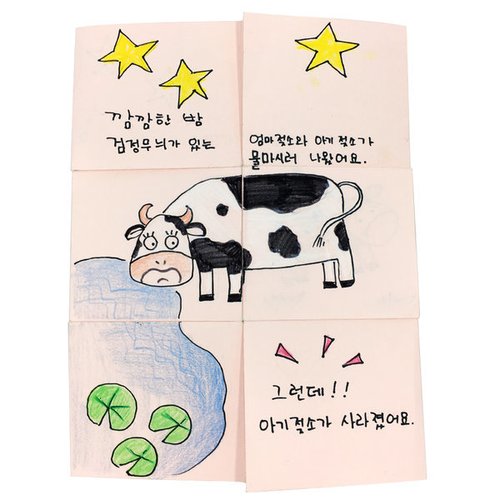 깜깜한 밤
검정무늬가 있는
엄마젖소와 아기 젖소가
물마시러 나왔어요.
그런데!!
아기젖소가 사라졌어요.